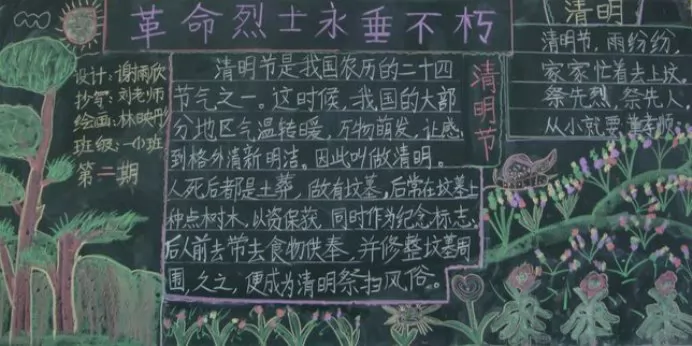 革命烈士永垂不朽
设计:谢雨欣
抄写:刘老师
绘画:林映彤
班级:一小班
第二期
清明节是我国农历的二十四
节气之一。这时候,我国的大部
分地区气温转暖,万物萌发,让感
到格外清新明洁。因此叫做清明。
人死后都是土葬,做有坟墓,后常在坟墓上
种点树木,以资保获,同时作为纪念标志,
后从前去带去食物供奉,并修整坟墓周
围,久之,便成为清明祭扫风俗。
清明节
清明
清明节,雨纷纷,
家家忙着去上坟。
祭先烈,祭先人,
从小就要 孝顺